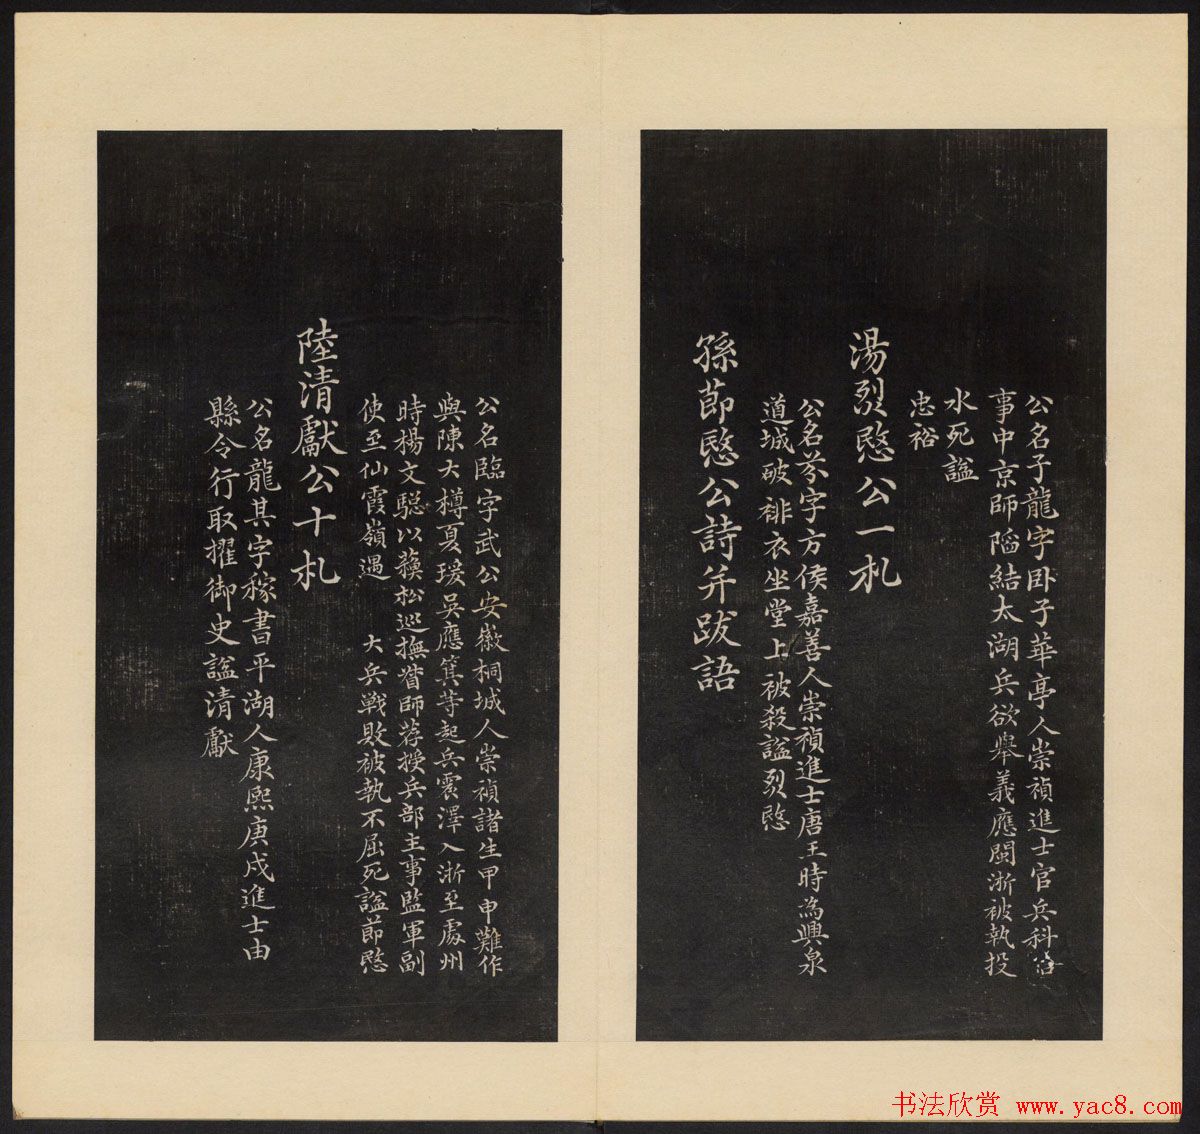 公名子龍字卧子華亭人崇禎進士官兵科給
事中京師陷結太湖兵欲舉義應閩浙被執投
水死諡
忠裕
湯烈愍公一札
公名芬字方侯嘉善人崇禎進士唐王時為興泉
道城破緋衣坐堂上被殺諡烈愍
孫節愍公詩并跋語
公名臨字武公安徽桐城人崇禎諸生甲申難作
與陳大樽夏瑗吳應箕等起兵震澤入浙至處州
時楊文驄以蘇松巡撫督師荐授兵部主事監軍副
使至仙霞嶺遇　大兵戰敗被執不屈死諡節愍
陸清獻公十札
公名龍其字稼書平湖人康熙庚戌進士由
縣令行取擢御史諡清獻
书法欣赏 www.yac8.com